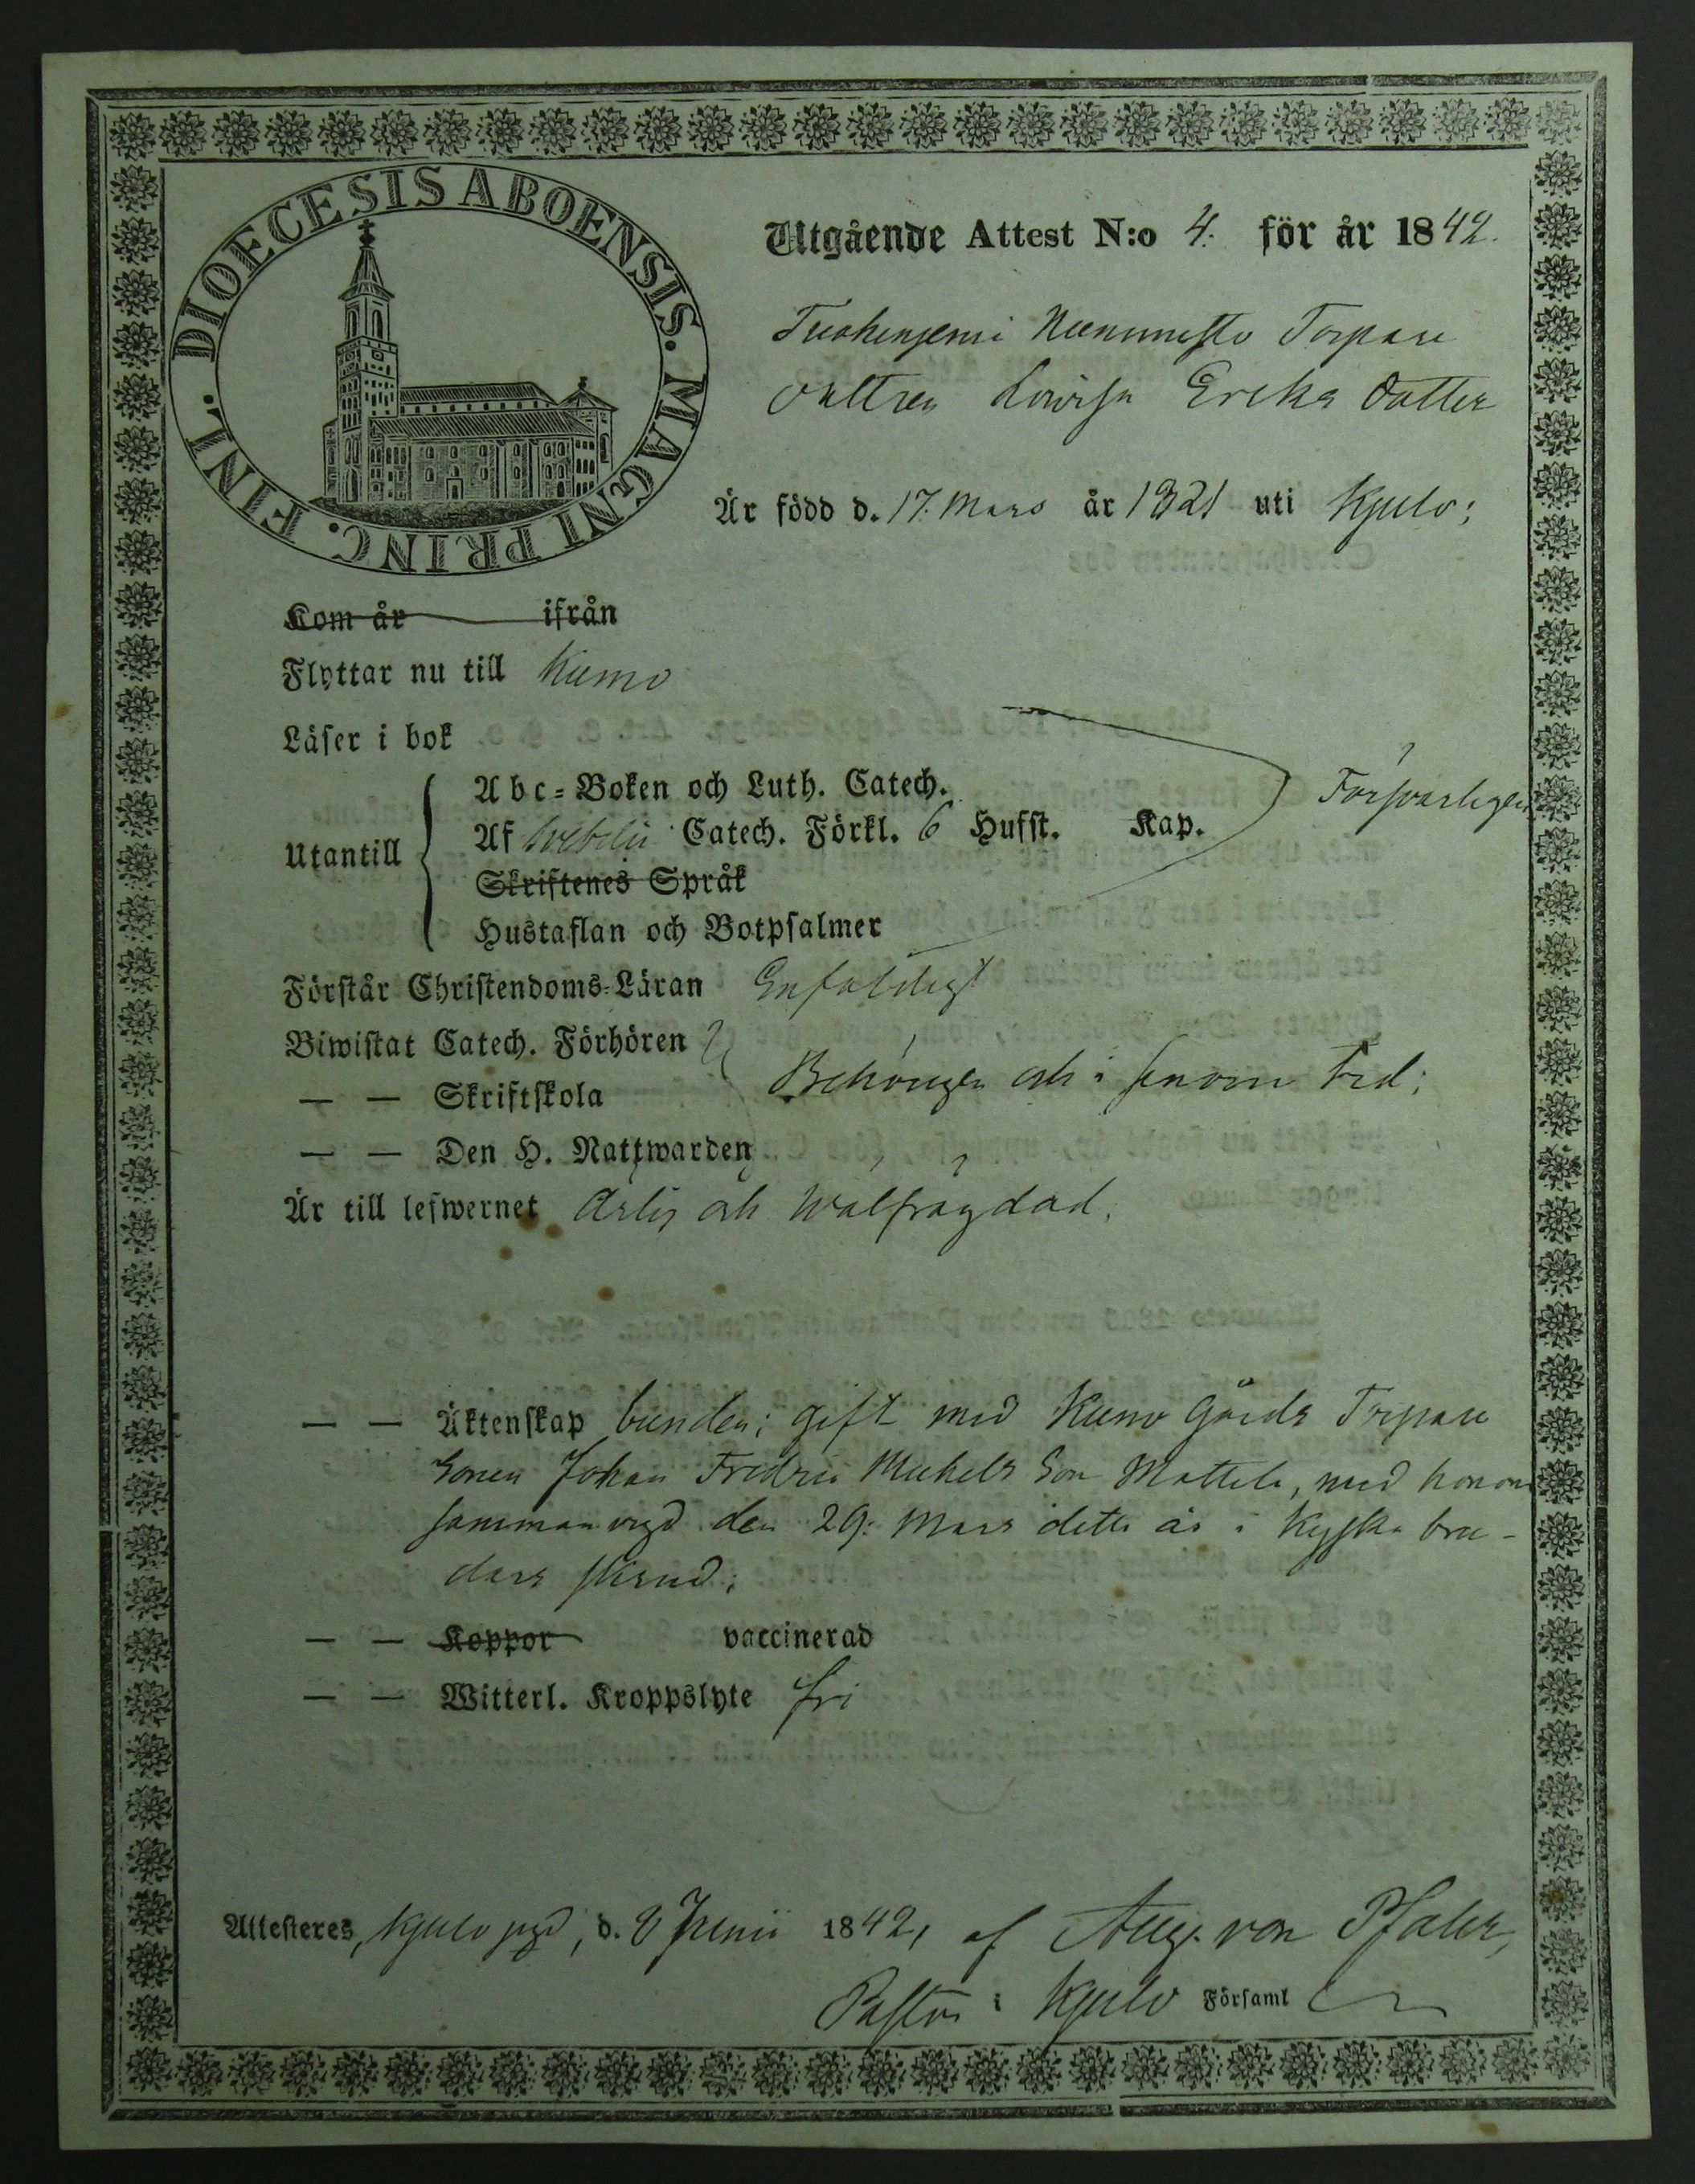 DIOECESIS ABOENSIS. MAGNI PRINC. FINL.
Utgående Attest N:o 4. för år 1842.
Torpare
dottren Lovisa Ericks dotter
Är född d. 17. Mars år 1821 uti Kjulo;
Kom år ifrån
Flyttar nu till Kiemo
Läser i bok
Abc-Boken och Luth. Catech.
Försvarligen
Utantill
Af Svebelii Catech. Förkl. 6 Hufst. Kap.
Skriftenes Språk
Hustaflan och Botpsalmer
Förstår Christendoms-Läran Enfaldigt
Biwistat Catech. Förhören
— — Skriftskola
Behörigen och i senare tid;
— — Den H. Nattwarden
Är till lefwernet Ärlig och Wälfrägdad.
— — Äktenskap bunden; gift med Kiemo Gårds Torpare
Sonen Johan Fredric Michels Son Mattila, med honom
sammanvigd den 29. Mars detta år i Kyska bru-
dars skrud;
— — Koppor vaccinerad
— — Witterl. Kroppslyte fri
Attesteres, Kjulo pgd, d. 8 Junii 1842, af Aug. von Pfaler,
Pastor i Kjulo Församl